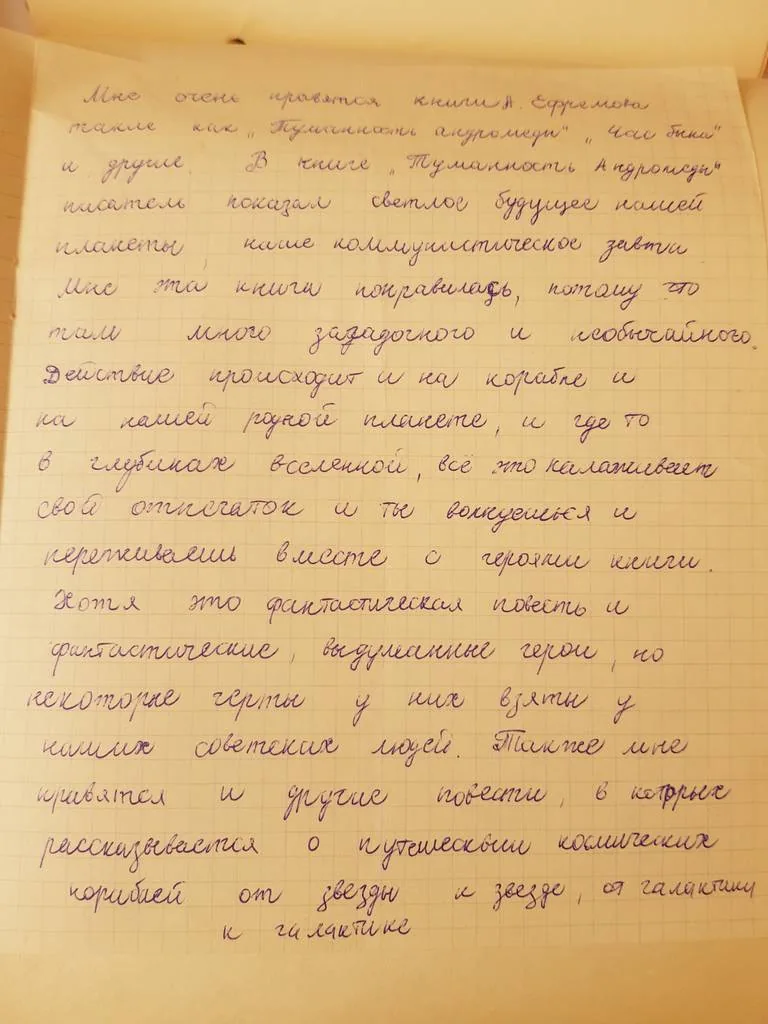 Мне очень нравятся книги А. Ефремова
такие как „Туманность андромеды" „Час быка"
и другие. В книге „Туманность Андромеды"
писатель показал светлое будущее нашей
планеты, наше коммунистическое завтра
Мне эта книга понравилась, потому что
там много загадочного и необычайного.
Действие происходит и на корабле и
на нашей родной планете, и где то
в глубинах вселенной, всё это налаживает
свой отпечаток и ты волнуешься и
переживаешь вместе с героями книги.
Хотя это фантастическая повесть и
фантастические, выдуманные герои, но
некоторые черты у них взяты у
наших советских людей. Также мне
нравятся и другие повести, в которых
рассказывается о путешесвии космических
кораблей от звезды к звезде, от галактики
к галактике